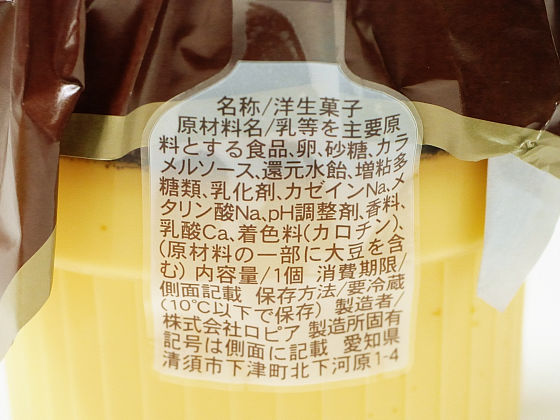 名称/洋生菓子
原材料名/乳等を主要原
料とする食品、卵、砂糖、カラ
メルソース、還元水飴、増粘多
糖類、乳化剤、カゼインNa、メ
タリン酸Na、pH調整剤、香料、
乳酸Ca、着色料(カロチン)、
(原材料の一部に大豆を含
む) 内容量/1個 消費期限/
側面記載 保存方法/要冷蔵
(10℃以下で保存) 製造者/
株式会社ロピア 製造所固有
記号は側面に記載 愛知県
清須市下津町北下河原1-4